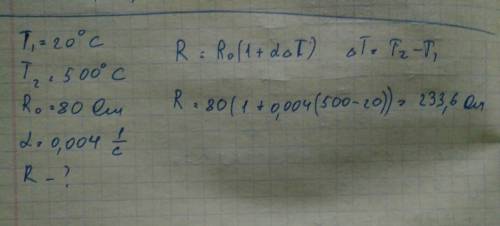 T₁=20°C
T₂=500°C
R₀=80 Ом
α=0,004 1/c
R – ?
R = R₀(1+αΔT) ΔT= T₂–T₁
R = 80(1+0,004(500-20))= 233,6 Ом